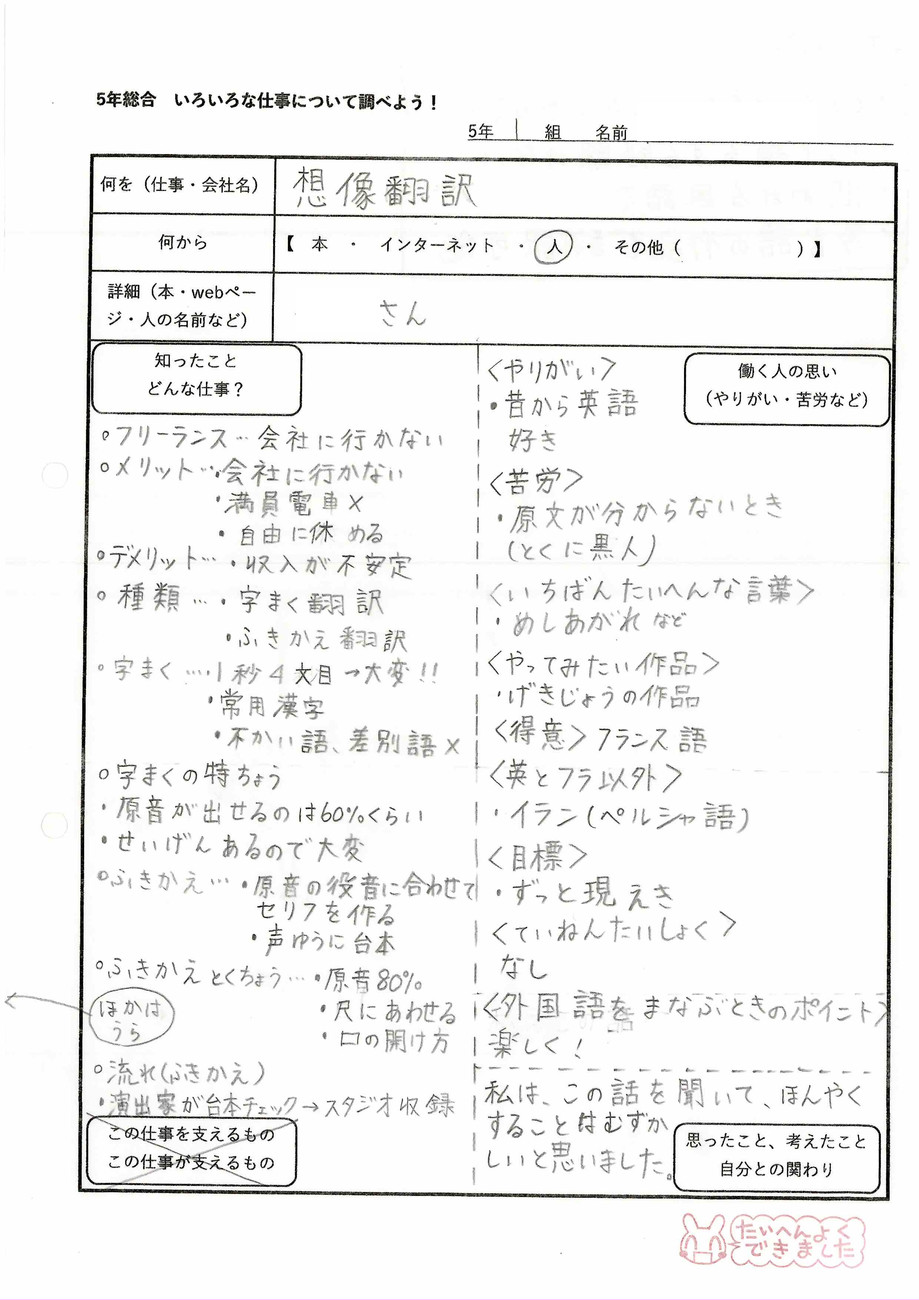 5年総合　いろいろな仕事について調べよう！
5年　1　組　名前
何を（仕事・会社名）
想像翻訳
何から
【　本　・　インターネット　・　人　・　その他（　　　　　　）】
詳細（本・webページ・人の名前など）
さん
知ったこと
どんな仕事？
○フリーランス…会社に行かない
○メリット…・会社に行かない
・満員電車×
・自由に休める
○デメリット…・収入が不安定
○種類…・字まく翻訳
・ふきかえ翻訳
○字まく…・1秒4文目→大変!!
・常用漢字
・不かい語、差別語×
○字まくの特ちょう
・原音が出せるのは60%くらい
・せいげんあるので大変
○ふきかえ…・原音の役音に合わせて
セリフを作る
・声ゆうに台本
○ふきかえとくちょう…・原音80%
・尺にあわせる
・口の開け方
ほかは
うら
○流れ(ふきかえ)
・演出家が台本チェック→スタジオ収録
この仕事を支えるもの
この仕事が支えるもの
働く人の思い
（やりがい・苦労など）
〈やりがい〉
・昔から英語
好き
〈苦労〉
・原文が分からないとき
(とくに黒人)
〈いちばんたいへんな言葉〉
・めしあがれなど
〈やってみたい作品〉
・げきじょうの作品
〈得意〉フランス語
〈英とフラ以外〉
・イラン(ペルシャ語)
〈目標〉
・ずっと現えき
〈ていねんたいしょく〉
なし
〈外国語をまなぶときのポイント〉
楽しく！
私は、この話を聞いて、ほんやく
することはむずか
しいと思いました。
思ったこと、考えたこと
自分との関わり
たいへんよく
できました